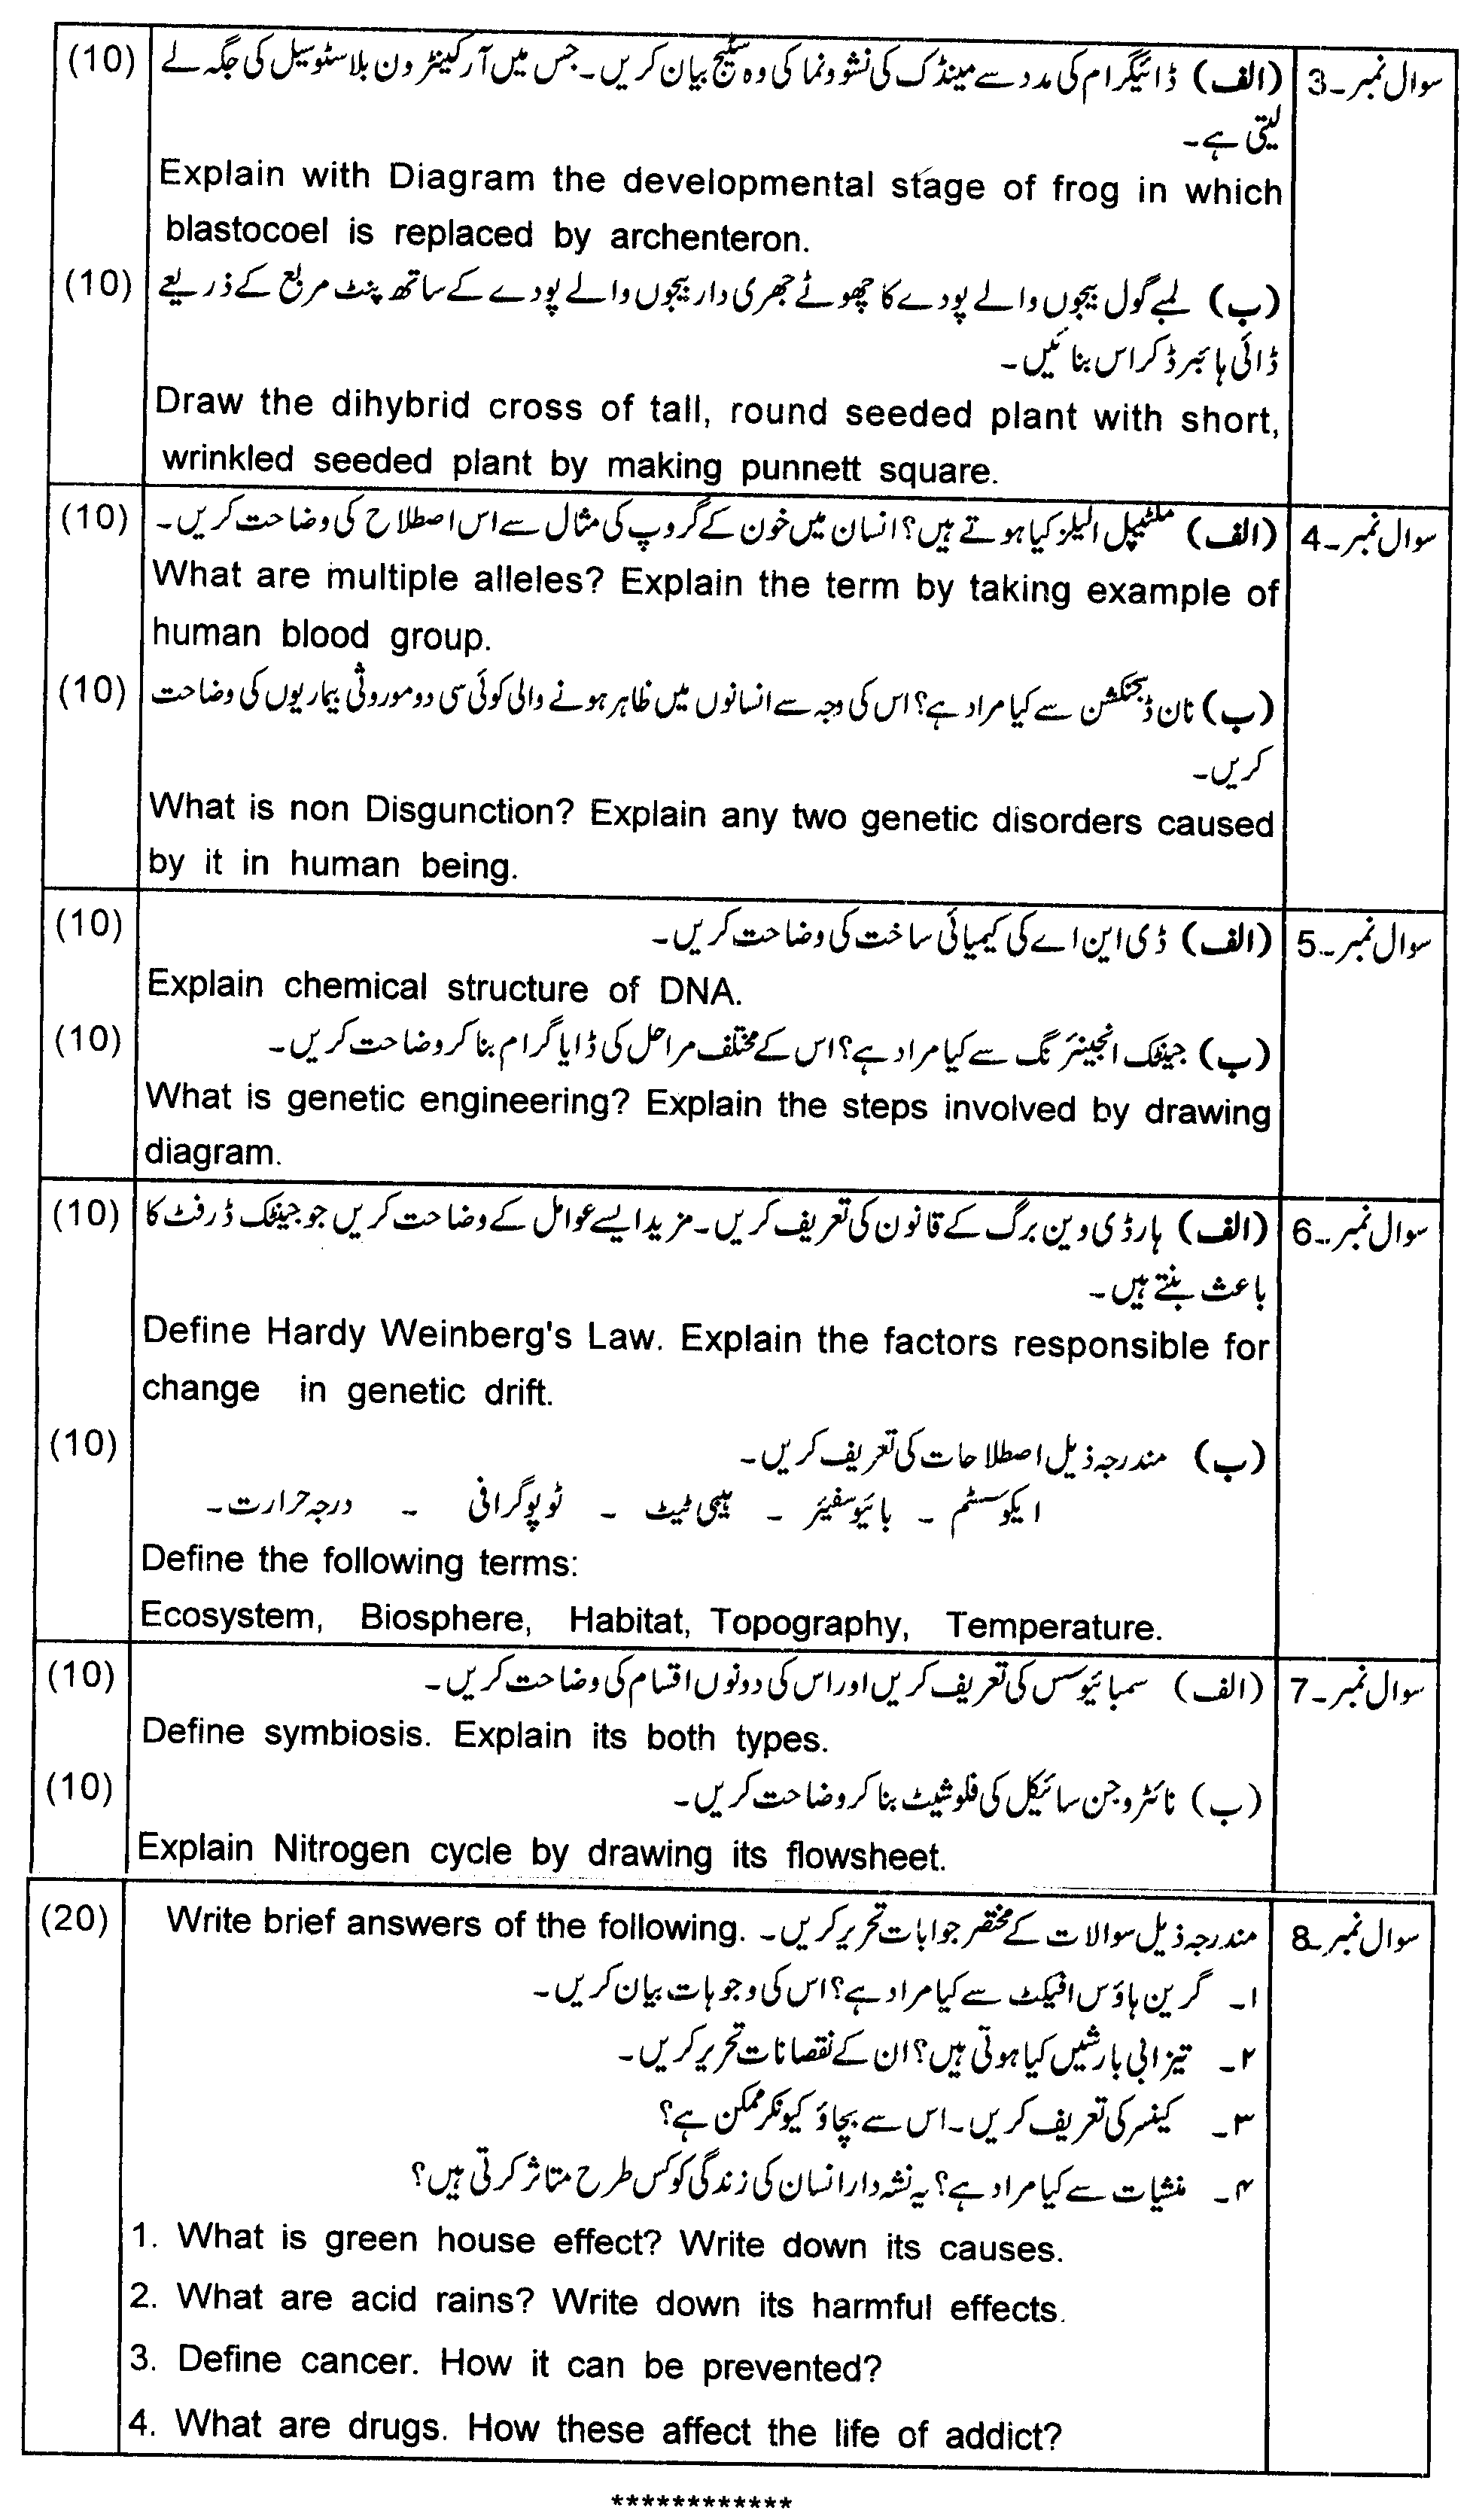 سوال نمبر۔3 (الف) ڈائیگرام کی مدد سے مینڈک کی نشوونما کی وہ سٹیج بیان کریں۔ جس میں آرکینٹرون بلاسٹوسیل کی جگہ لے (10)
لیتی ہے۔
Explain with Diagram the developmental stage of frog in which
blastocoel is replaced by archenteron.
(ب) لمبے گول بیجوں والے پودے کا چھوٹے جھری دار بیجوں والے پودے کے ساتھ پنٹ مربع کے ذریعے (10)
ڈائی ہائبرڈ کراس بنائیں۔
Draw the dihybrid cross of tall, round seeded plant with short,
wrinkled seeded plant by making punnett square.
سوال نمبر۔4 (الف) ملٹیپل الیلز کیا ہوتے ہیں؟ انسان میں خون کے گروپ کی مثال سے اس اصطلاح کی وضاحت کریں۔ (10)
What are multiple alleles? Explain the term by taking example of
human blood group.
(ب) نان ڈسجنکشن سے کیا مراد ہے؟ اس کی وجہ سے انسانوں میں ظاہر ہونے والی کوئی سی دو موروثی بیماریوں کی وضاحت (10)
کریں۔
What is non Disgunction? Explain any two genetic disorders caused
by it in human being.
سوال نمبر۔5 (الف) ڈی این اے کی کیمیائی ساخت کی وضاحت کریں۔ (10)
Explain chemical structure of DNA.
(ب) جینٹک انجینئرنگ سے کیا مراد ہے؟ اس کے مختلف مراحل کی ڈایاگرام بنا کر وضاحت کریں۔ (10)
What is genetic engineering? Explain the steps involved by drawing
diagram.
سوال نمبر۔6 (الف) ہارڈی وین برگ کے قانون کی تعریف کریں۔ مزید ایسے عوامل کے وضاحت کریں جو جینٹک ڈرفٹ کا (10)
باعث بنتے ہیں۔
Define Hardy Weinberg's Law. Explain the factors responsible for
change in genetic drift.
(ب) مندرجہ ذیل اصطلاحات کی تعریف کریں۔ (10)
ایکوسسٹم ۔ بائیوسفیئر ۔ ہیبی ٹیٹ ۔ ٹوپوگرافی ۔ درجہ حرارت۔
Define the following terms:
Ecosystem, Biosphere, Habitat, Topography, Temperature.
سوال نمبر۔7 (الف) سمبائیوسس کی تعریف کریں اور اس کی دونوں اقسام کی وضاحت کریں۔ (10)
Define symbiosis. Explain its both types.
(ب) نائٹروجن سائیکل کی فلوشیٹ بنا کر وضاحت کریں۔ (10)
Explain Nitrogen cycle by drawing its flowsheet.
سوال نمبر۔8 مندرجہ ذیل سوالات کے مختصر جوابات تحریر کریں۔ Write brief answers of the following. (20)
۱۔ گرین ہاؤس افیکٹ سے کیا مراد ہے؟ اس کی وجوہات بیان کریں۔
۲۔ تیزابی بارشیں کیا ہوتی ہیں؟ ان کے نقصانات تحریر کریں۔
۳۔ کینسر کی تعریف کریں۔ اس سے بچاؤ کیونکر ممکن ہے؟
۴۔ منشیات سے کیا مراد ہے؟ یہ نشہ دار انسان کی زندگی کو کس طرح متاثر کرتی ہیں؟
1. What is green house effect? Write down its causes.
2. What are acid rains? Write down its harmful effects.
3. Define cancer. How it can be prevented?
4. What are drugs. How these affect the life of addict?
************